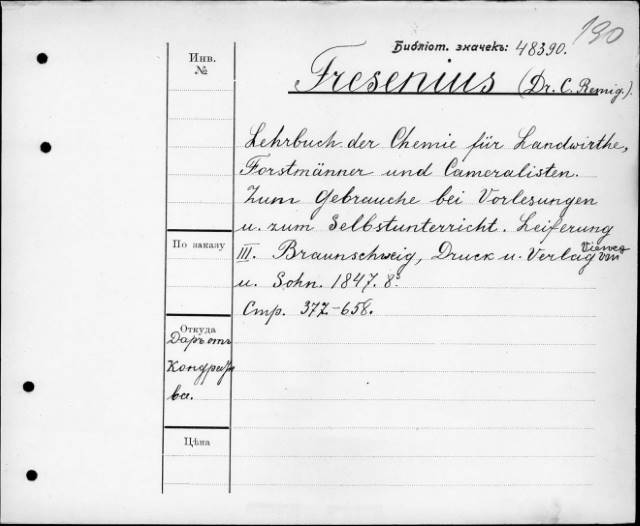 190
Библіот. значекъ: 48390.
Инв.
№
Fresenius (Dr. C. Remig.).
Lehrbuch der Chemie für Landwirthe,
Forstmänner und Cameralisten.
Zum Gebrauche bei Vorlesungen
u. zum Selbstunterricht. Leiferung
III. Braunschweig, Druck u. Verlag von Vieweg
u. Sohn. 1847. 8º
Стр. 377-658.
По заказу
Откуда
Даръ отъ
Кондратье
ва.
Цѣна